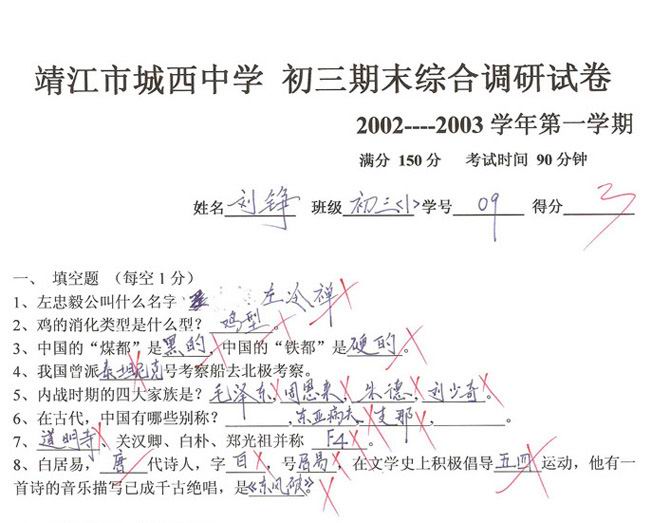 靖江市城西中学 初三期末综合调研试卷
2002----2003 学年第一学期
满分 150 分 考试时间 90 分钟
姓名 刘铮 班级 初三<1> 学号 09 得分 3
一、 填空题 (每空 1 分)
1、左忠毅公叫什么名字 左冷禅
2、鸡的消化类型是什么型? 鸡型
3、中国的“煤都”是黑的,中国的“铁都”是硬的。
4、我国曾派泰坦尼克号考察船去北极考察。
5、内战时期的四大家族是?毛泽东,周恩来,朱德,刘少奇。
6、在古代,中国有哪些别称? ,东亚病夫,支那, 。
7、道明寺、关汉卿、白朴、郑光祖并称 F4 。
8、白居易, 唐 代诗人,字 白 ,号居易,在文学史上积极倡导五四运动,他有一
首诗的音乐描写已成千古绝唱,是《东风破》。